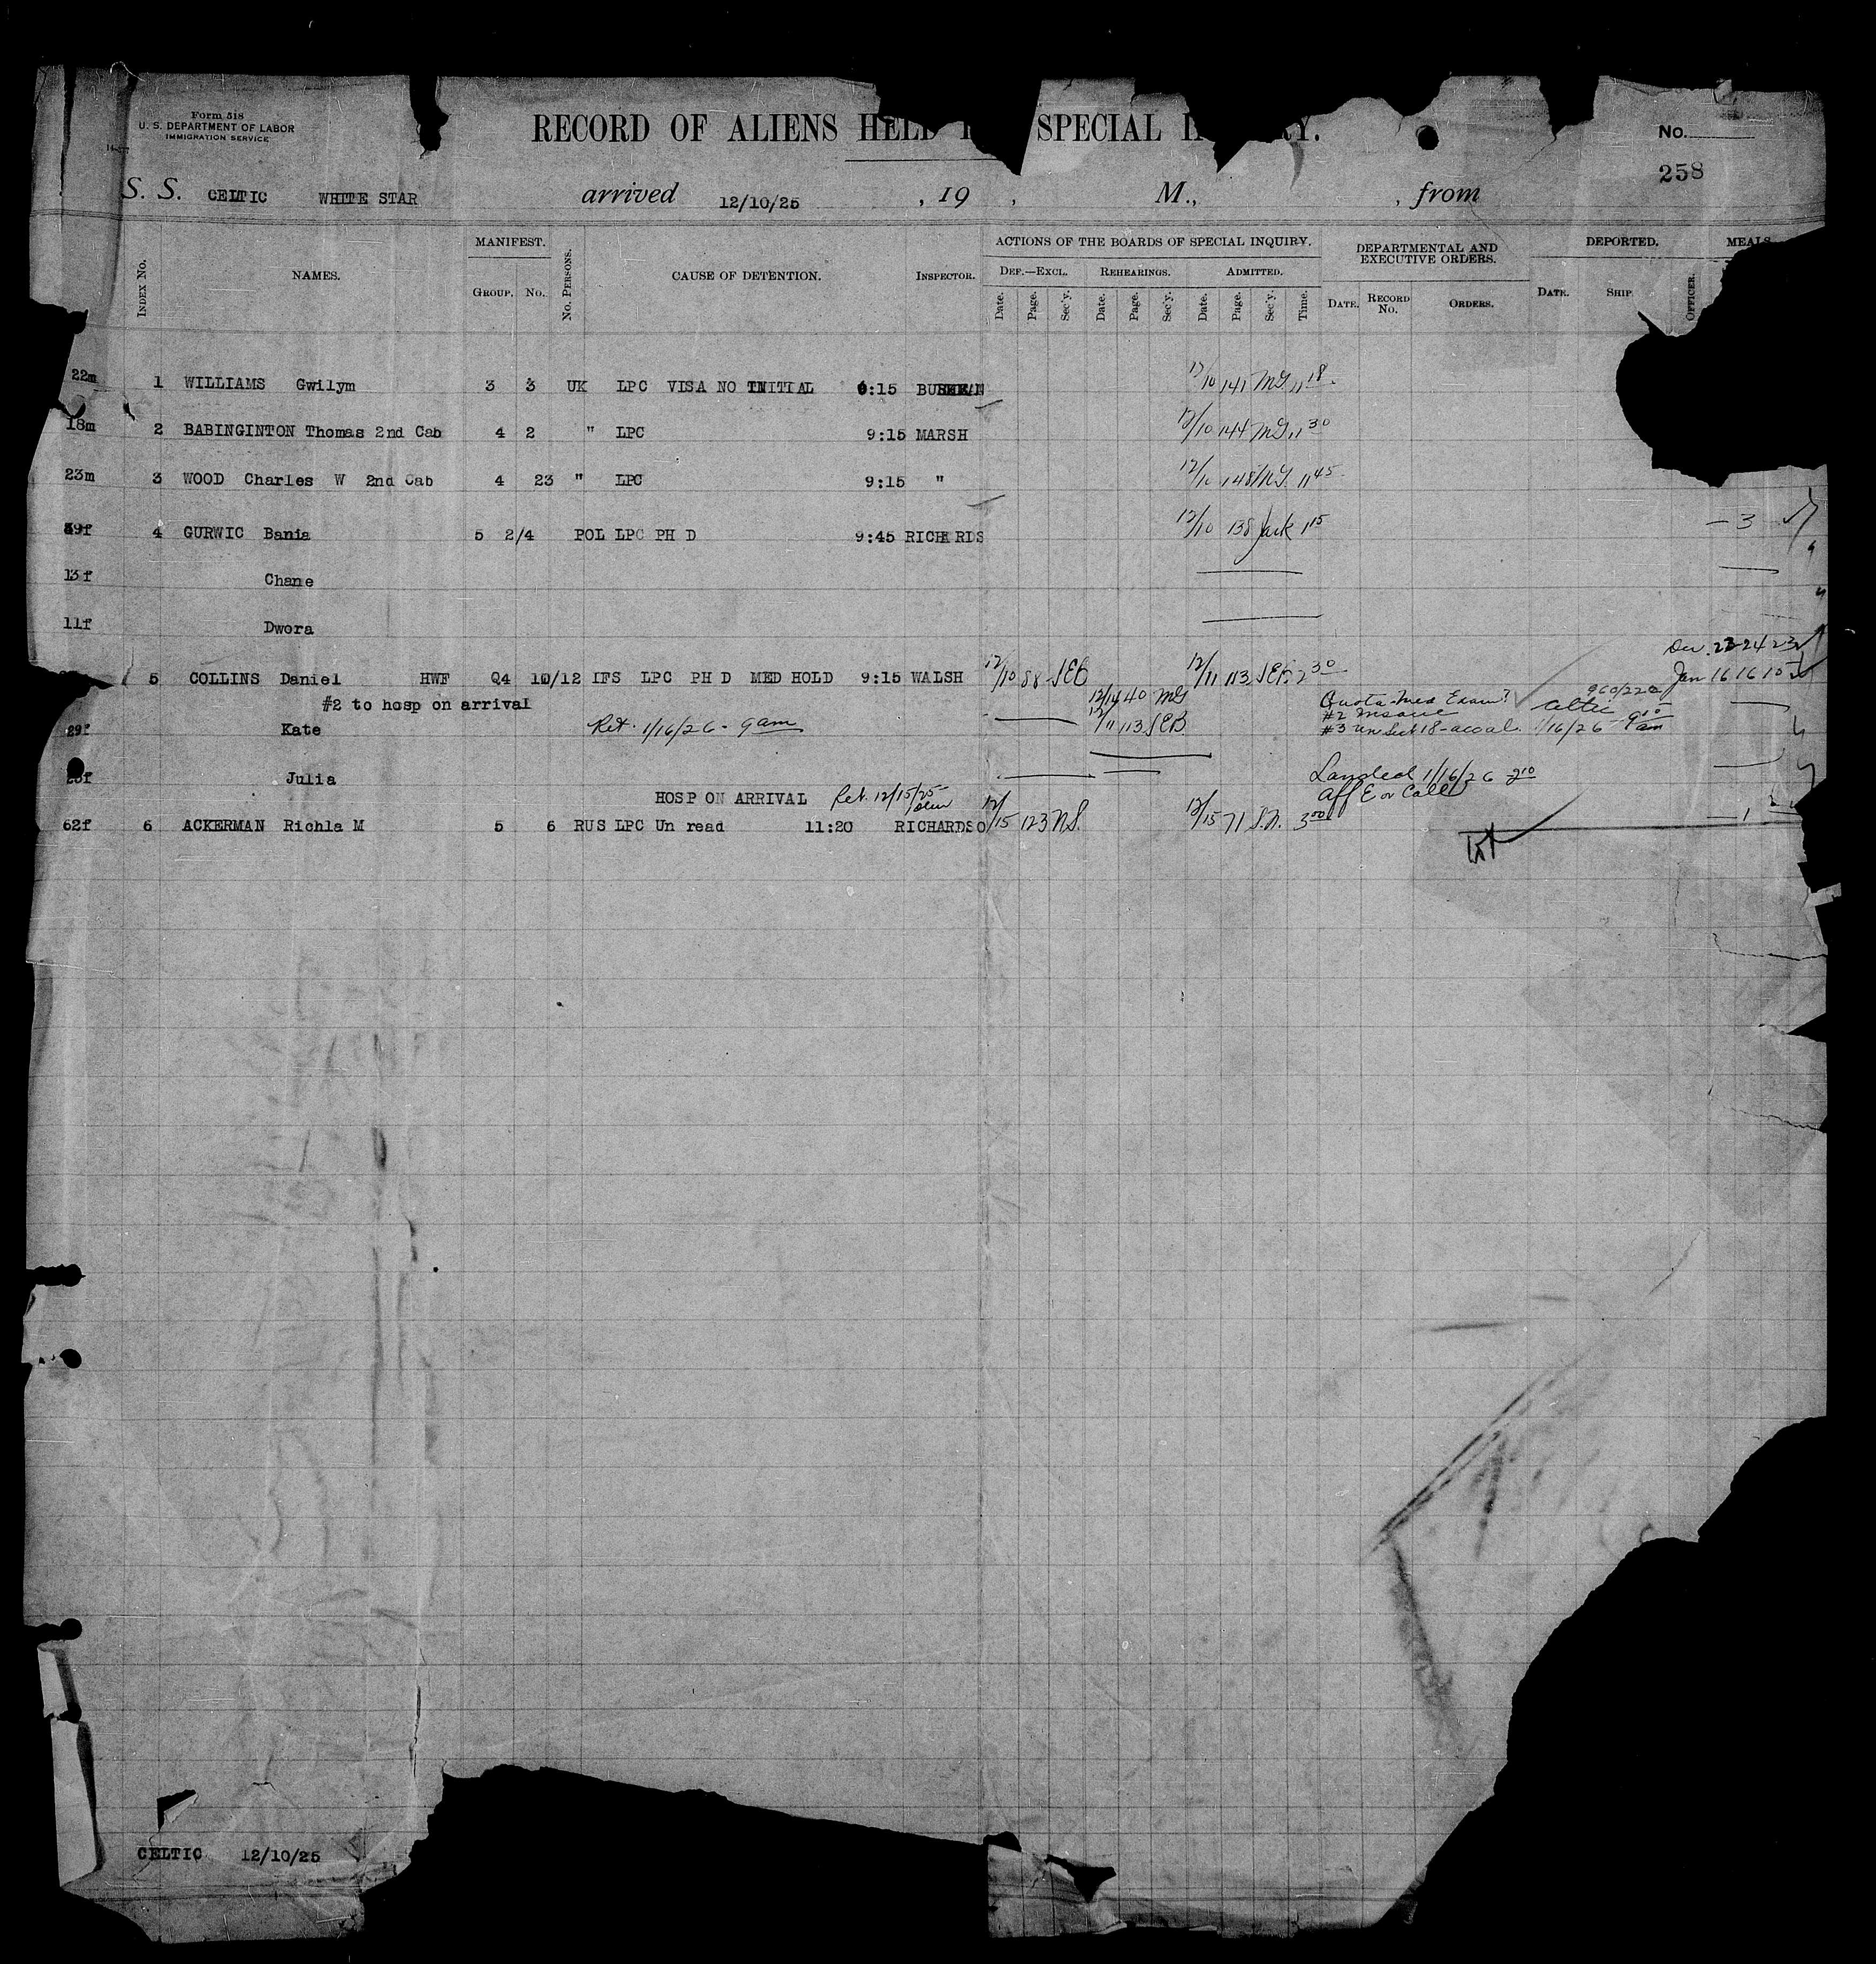 Form 518
U. S. DEPARTMENT OF LABOR
IMMIGRATION SERVICE
RECORD OF ALIENS HELD SPECIAL
No.
258
S. S. CELTIC WHITE STAR arrived 12/10/25 , 19 , M., , from
INDEX No. NAMES. MANIFEST. No. PERSONS. CAUSE OF DETENTION. INSPECTOR. ACTIONS OF THE BOARDS OF SPECIAL INQUIRY. DEPARTMENTAL AND EXECUTIVE ORDERS. DEPORTED. MEALS
GROUP. No. DEF.—EXCL. REHEARINGS. ADMITTED.
Date. Page. Sec'y. Date. Page. Sec'y. Date. Page. Sec'y. Time. DATE. RECORD No. ORDERS. DATE. SHIP. OFFICER.
22m 1 WILLIAMS Gwilym 3 3 UK LPC VISA NO INITIAL :15 12/10 141 MG 11 18
18m 2 BABINGINTON Thomas 2nd Cab 4 2 " LPC 9:15 MARSH 12/10 144 MG 11 30
23m 3 WOOD Charles W 2nd Cab 4 23 " LPC 9:15 " 12/10 148 MG 11 45
39f 4 GURWIC Bania 5 2/4 POL LPC PH D 9:45 RICHARDS 12/10 138 Jack 1 15 — 3
13f Chane
11f Dwora
5 COLLINS Daniel HWF Q4 10/12 IFS LPC PH D MED HOLD 9:15 WALSH 12/10 88 SEB 12/11 113 SEB 2 30 Jan 16 16 15
#2 to hosp on arrival 12/14 40 MG Quota-Med Exam? Celtic
29f Kate Ret. 1/16/26 - 9am 12/11 113 SEB #2 Insane
#3 un Sect 18- 1/16/26 9 am
Julia Landed 1/16/26 2 10
HOSP ON ARRIVAL Ret. 12/15/25 Aff E or Call
62f 6 ACKERMAN Richla M 5 6 RUS LPC Un read 11:20 RICHARDSO 12/15 123 N.S. 12/15 71 S.N. 3 00 — 1
CELTIC 12/10/25